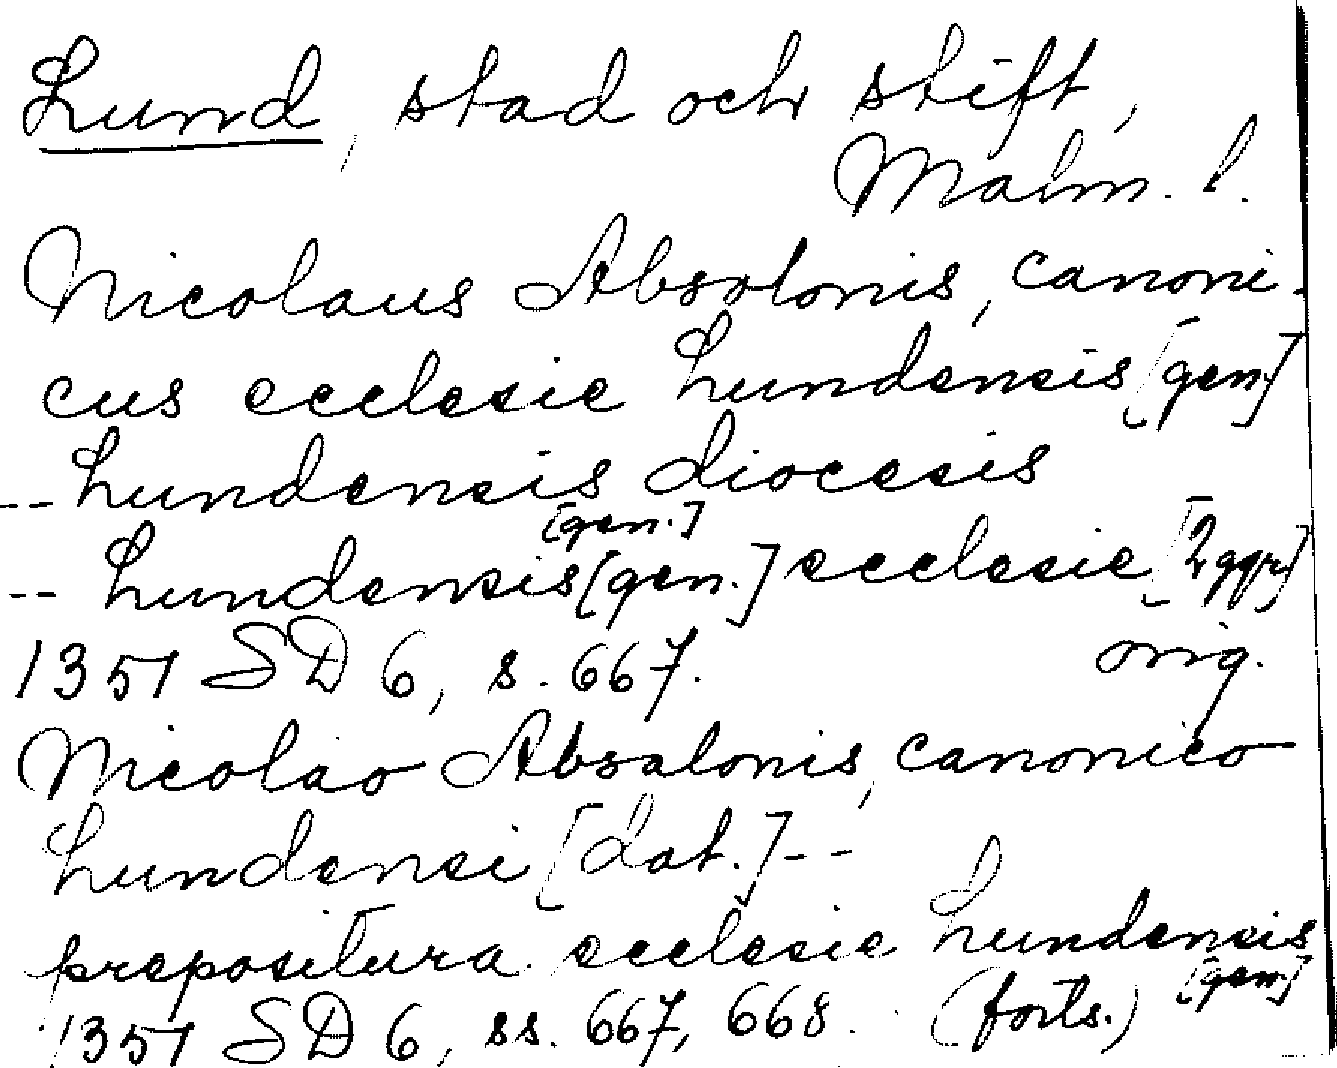 Lund, stad och stift,
Malm. l.
Nicolaus Absolonis, canoni-
cus ecclesie Lundensis [gen.]
-- Lundensis diocesis
[gen.]
-- Lundensis [gen.] ecclesie [2 ggr]
1351 SD 6, s. 667. orig.
Nicolao Absalonis, canonico
Lundensi [dat.] --
prepositura ecclesie Lundensis
[gen.]
1351 SD 6, ss. 667, 668. (forts.)